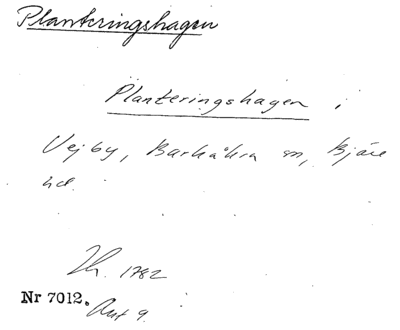 Planteringshagen
Planteringshagen i
Vejby, Barkåkra sn, Bjäre
hd.
Th. 1782
Nr 7012.
Akt 9.